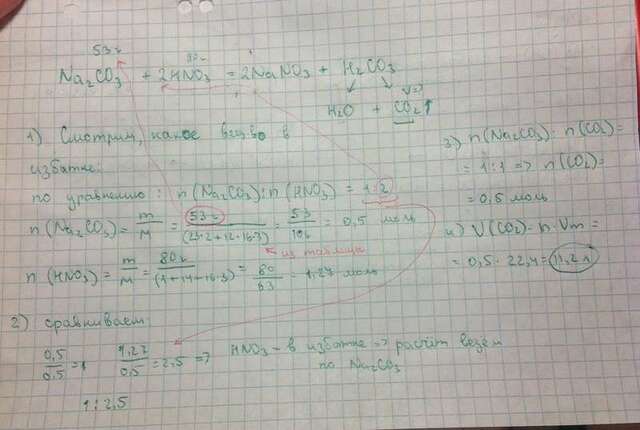 53г 80г
Na₂CO₃ + 2HNO₃ = 2NaNO₃ + H₂CO₃
V=?
H₂O + CO₂↑
1) Смотрим, какое вещ-во в
избытке:
по уравнению: n(Na₂CO₃):n(HNO₃) = 1:2
n(Na₂CO₃) = m/M = 53г/(23·2+12+16·3) = 53/106 = 0,5 моль
из таблицы
n(HNO₃) = m/M = 80г/(1+14+16·3) = 80/63 = 1,27 моль
2) сравниваем:
0,5/0,5 = 1 1,27/0,5 = 2,5 => HNO₃ - в избытке => расчёт ведём
по Na₂CO₃
1:2,5
3) n(Na₂CO₃):n(CO₂)=
= 1:1 => n(CO₂)=
= 0,5 моль
4) V(CO₂) = n·Vm =
= 0,5·22,4 = 11,2 л